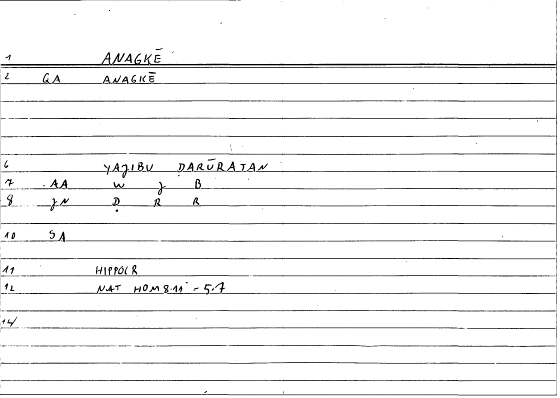 1 ANAGKĒ
2 GA ANAGKĒ
6 YAJIBU DARŪRATAN
7 AA W J B
8 JN Ḍ R R
10 SA
11 HIPPOCR
12 NAT HOM 8.11 - 5.7
14